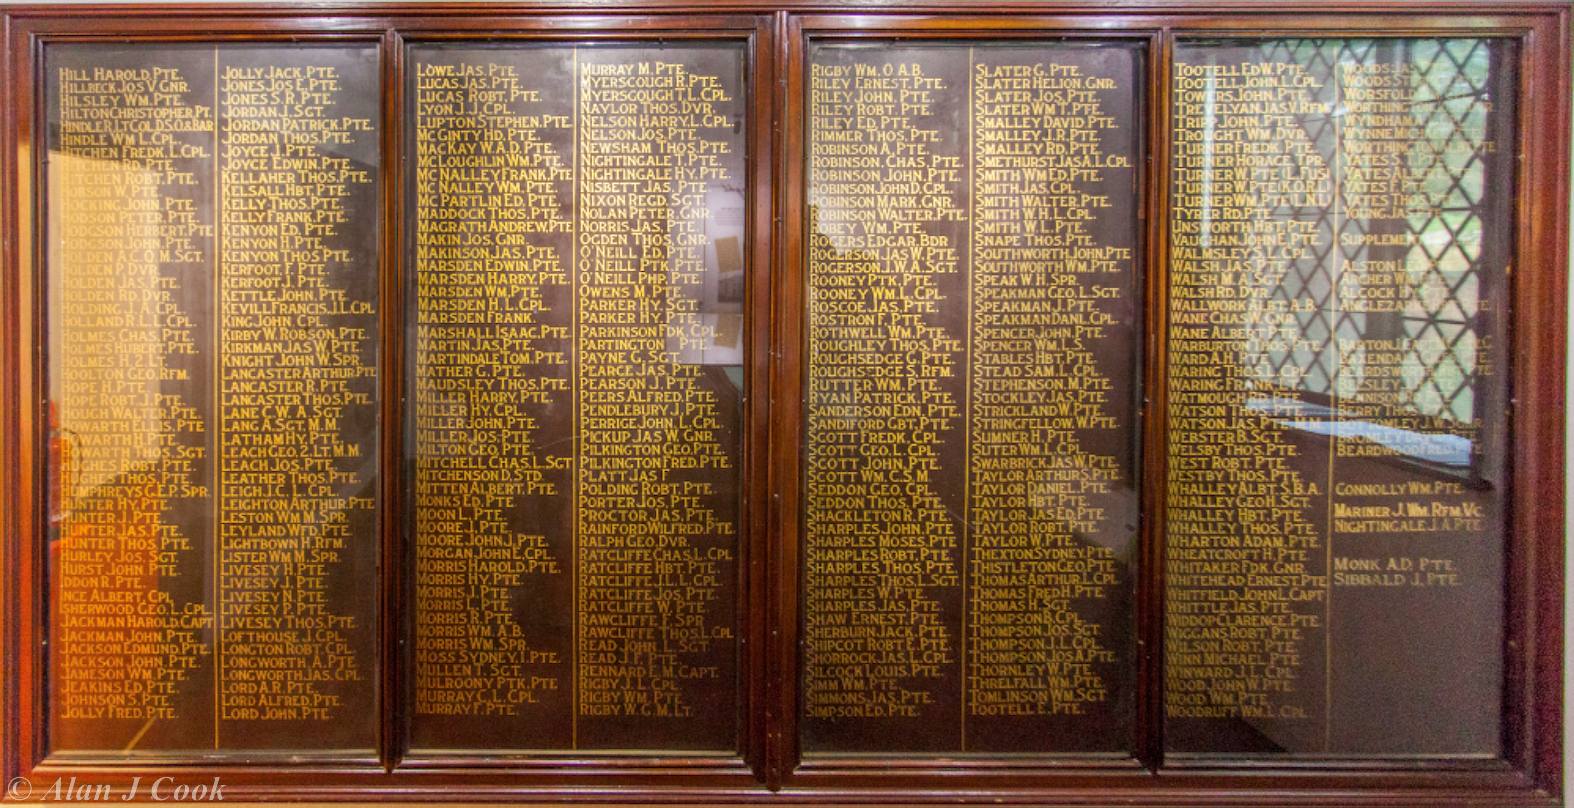 HILL HAROLD, PTE.
HILLBECK JOS V. GNR.
HILSLEY WM. PTE.
HILTON CHRISTOPHER, PT.
HINDLER J. LT COL. D.S.O. & BAR
HINDLE WM L. CPL.
HITCHEN FREDK. L. CPL.
HITCHEN RD. PTE.
HITCHEN ROBT. PTE.
HOBSON W. PTE.
HOCKING JOHN. PTE.
HODSON PETER. PTE.
HODGSON HERBERT. PTE
HODGSON JOHN. PTE.
HOLDEN A. C. Q. M. SGT.
HOLDEN P. DVR.
HOLDEN JAS. PTE.
HOLDEN RD. DVR.
HOLDING J. A. CPL.
HOLLAND R. L. L. CPL.
HOLMES CHAS. PTE.
HOLMES HUBERT. PTE.
HOLMES H. PTE.
HOOTON GEO. RFM.
HOPE H. PTE.
HOPE ROBT. J. PTE.
HOUGH WALTER. PTE.
HOWARTH ELLIS. PTE
HOWARTH H. PTE.
HOWARTH THOS. SGT.
HUGHES ROBT. PTE.
HUGHES THOS. PTE.
HUMPHREYS G. E. P. SPR.
HUNTER HY. PTE.
HUNTER J. PTE.
HUNTER JAS. PTE.
HUNTER THOS. PTE.
HURLEY JOS. SGT.
HURST JOHN. PTE.
IDDON R. PTE.
INCE ALBERT. CPL.
ISHERWOOD GEO. L. CPL.
JACKMAN HAROLD. CAPT
JACKMAN JOHN. PTE.
JACKSON EDMUND. PTE.
JACKSON JOHN. PTE.
JAMESON WM. PTE.
JEAKINS ED. PTE.
JOHNSON S. PTE.
JOLLY FRED. PTE.
JOLLY JACK. PTE.
JONES JOS E. PTE.
JONES S. R. PTE.
JORDAN J. SGT.
JORDAN PATRICK. PTE.
JORDAN THOS. PTE.
JOYCE J. PTE.
JOYCE EDWIN. PTE.
KELLAHER THOS. PTE.
KELSALL HBT. PTE.
KELLY THOS. PTE.
KELLY FRANK. PTE.
KENYON ED. PTE.
KENYON H. PTE.
KENYON THOS. PTE.
KERFOOT. F. PTE.
KERFOOT. J. PTE.
KETTLE JOHN. PTE
KEVILL FRANCIS. J. L. CPL
KING JOHN. CPL.
KIRBY W. ROBSON. PTE.
KIRKMAN JAS W. PTE.
KNIGHT JOHN W. SPR.
LANCASTER ARTHUR. PTE
LANCASTER R. PTE.
LANCASTER THOS. PTE.
LANE C. W. A. SGT.
LANG A. SGT. M.M.
LATHAM HY. PTE.
LEACH GEO. 2. LT. M.M.
LEACH JOS. PTE.
LEATHER THOS. PTE.
LEIGH. J. C. L. CPL.
LEIGHTON ARTHUR. PTE
LESTON WM M. SPR.
LEYLAND WFD. PTE.
LIGHTBOWN H. RFM.
LISTER WM M. SPR.
LIVESEY H. PTE.
LIVESEY J. PTE.
LIVESEY N. PTE.
LIVESEY P. PTE.
LIVESEY THOS. PTE.
LOFTHOUSE J. CPL.
LONGTON ROBT. CPL.
LONGWORTH. A. PTE.
LONGWORTH JAS. CPL.
LORD A. R. PTE.
LORD ALFRED. PTE.
LORD JOHN. PTE.
LOWE JAS. PTE.
LUCAS JAS. PTE.
LUCAS ROBT. PTE.
LYON J. L. CPL.
LUPTON STEPHEN. PTE.
MC GINTY HD. PTE.
MACKAY W. A. D. PTE.
MC LOUGHLIN WM. PTE.
MC NALLEY FRANK. PTE
MC NALLEY WM. PTE.
MC PARTLIN ED. PTE.
MADDOCK THOS. PTE.
MAGRATH ANDREW. PTE
MAKIN JOS. GNR.
MAKINSON. JAS. PTE.
MARSDEN EDWIN. PTE.
MARSDEN HARRY. PTE.
MARSDEN WM. PTE.
MARSDEN H. L. CPL.
MARSDEN FRANK.
MARSHALL ISAAC. PTE.
MARTIN JAS. PTE.
MARTINDALE TOM. PTE.
MATHER G. PTE.
MAUDSLEY THOS. PTE.
MILLER HARRY. PTE.
MILLER HY. CPL.
MILLER JOHN. PTE.
MILLER JOS. PTE.
MILTON GEO. PTE.
MITCHELL CHAS. L. SGT
MITCHENSON D. STD.
MITTEN ALBERT. PTE.
MONKS ED. PTE.
MOON L. PTE.
MOORE J. PTE.
MOORE JOHN J. PTE.
MORGAN JOHN E. CPL.
MORRIS HAROLD. PTE.
MORRIS HY. PTE.
MORRIS J. PTE.
MORRIS L. PTE.
MORRIS R. PTE.
MORRIS WM. A.B.
MORRIS WM. SPR.
MOSS SYDNEY. I. PTE.
MULLEN J. SGT.
MULROONY PTK. PTE.
MURRAY C. L. CPL.
MURRAY F. PTE.
MURRAY M. PTE.
MYERSCOUGH R. PTE.
MYERSGOUGH T. L. CPL.
NAYLOR THOS. DVR.
NELSON HARRY. L. CPL.
NELSON JOS. PTE.
NEWSHAM THOS. PTE.
NIGHTINGALE T. PTE.
NIGHTINGALE HY. PTE.
NISBETT JAS. PTE.
NIXON REGD. SGT.
NOLAN PETER. GNR.
NORRIS JAS. PTE.
OGDEN THOS. GNR.
O'NEILL ED. PTE.
O'NEILL PTK. PTE.
O'NEILL PHP. PTE.
OWENS M. PTE.
PARKER HY. SGT.
PARKER HY. PTE.
PARKINSON FDK. CPL.
PARTINGTON PTE.
PAYNE G. SGT.
PEARCE JAS. PTE.
PEARSON J. PTE.
PEERS ALFRED. PTE.
PENDLEBURY J. PTE.
PERRIGE JOHN. L. CPL.
PICKUP JAS W. GNR.
PILKINGTON GEO. PTE.
PILKINGTON FRED. PTE.
PLATT JAS F
POLDING ROBT. PTE.
PORTER JOS. PTE.
PROCTOR JAS. PTE.
RAINFORD WILFRED. PTE.
RALPH GEO. DVR.
RATCLIFFE CHAS. L. CPL.
RATCLIFFE HBT. PTE.
RATCLIFFE J. L. L. CPL.
RATCLIFFE JOS. PTE.
RATCLIFFE W. PTE.
RAWCLIFFE F. SPR
RAWCLIFFE THOS. L. CPL
READ JOHN. L. SGT.
READ J. F. PTE.
RENNARD E. M. CAPT.
RIGBY J. L. CPL.
RIGBY WM. PTE.
RIGBY W. G. M. LT.
RIGBY WM. O. A.B.
RILEY ERNEST. PTE.
RILEY JOHN. PTE.
RILEY ROBT. PTE.
RILEY ED. PTE.
RIMMER THOS. PTE.
ROBINSON A. PTE.
ROBINSON. CHAS. PTE.
ROBINSON. JOHN. PTE.
ROBINSON JOHN D. CPL.
ROBINSON MARK. GNR.
ROBINSON WALTER. PTE.
ROBEY WM. PTE.
ROGERS EDGAR. BDR
ROGERSON JAS W. PTE.
ROGERSON. J. W. A. SGT.
ROONEY PTK. PTE.
ROONEY WM L. CPL.
ROSCOE JAS. PTE.
ROSTRON F. PTE.
ROTHWELL WM. PTE.
ROUGHLEY THOS. PTE.
ROUGHSEDGE G. PTE.
ROUGHSEDGE S. RFM.
RUTTER WM. PTE.
RYAN PATRICK. PTE.
SANDERSON EDN. PTE.
SANDIFORD GBT. PTE.
SCOTT FREDK. CPL.
SCOTT GEO. L. CPL.
SCOTT JOHN. PTE.
SCOTT WM. C.S.M.
SEDDON GEO. CPL.
SEDDON THOS. PTE.
SHACKLETON R. PTE.
SHARPLES JOHN. PTE
SHARPLES MOSES. PTE.
SHARPLES ROBT. PTE.
SHARPLES THOS. PTE.
SHARPLES THOS. L. SGT.
SHARPLES W. PTE.
SHARPLES JAS. PTE.
SHAW ERNEST. PTE.
SHERBURN JACK. PTE.
SHIPCOT ROBT E. PTE.
SHORROCK JAS. L. CPL.
SILCOCK LOUIS. PTE.
SIMM WM. PTE.
SIMMONS JAS. PTE.
SIMPSON ED. PTE.
SLATER G. PTE.
SLATER HELION. GNR.
SLATER JOS. PTE.
SLATER WM T. PTE.
SMALLEY DAVID. PTE.
SMALLEY J. R. PTE.
SMALLEY RD. PTE.
SMETHURST JAS A. L. CPL
SMITH WM ED. PTE.
SMITH JAS. CPL.
SMITH WALTER. PTE.
SMITH W. H. L. CPL.
SMITH W. L. PTE.
SNAPE THOS. PTE.
SOUTHWORTH JOHN. PTE
SOUTHWORTH WM. PTE.
SPEAK W H. SPR.
SPEAKMAN GEO. L. SGT.
SPEAKMAN J. PTE.
SPEAKMAN DANL. CPL.
SPENCER JOHN. PTE.
SPENCER WM. L. S.
STABLES HBT. PTE.
STEAD SAM L. CPL.
STEPHENSON. M. PTE.
STOCKLEY JAS. PTE.
STRICKLAND W. PTE.
STRINGFELLOW. W. PTE.
SUMNER H. PTE.
SUTER WM L. CPL.
SWARBRICK JAS W. PTE.
TAYLOR ARTHUR S. PTE.
TAYLOR DANIEL. PTE.
TAYLOR HBT. PTE.
TAYLOR JAS ED. PTE.
TAYLOR ROBT. PTE.
TAYLOR W. PTE.
THEXTON SYDNEY. PTE
THISTLETON GEO. PTE
THOMAS ARTHUR. L. CPL
THOMAS FRED H. PTE.
THOMAS H. SGT.
THOMPSON B. CPL.
THOMPSON JOS. SGT.
THOMPSON J. L. CPL.
THOMPSON JOS A. PTE.
THORNLEY W. PTE.
THRELFALL WM. PTE.
TOMLINSON WM. SGT
TOOTELL E. PTE.
TOOTELL ED W. PTE.
TOOTELL JOHN L. CPL.
TOWERS JOHN. PTE.
TREVELYAN JAS V. RFM
TRIPP JOHN. PTE.
TROUGHT WM. DVR.
TURNER FREDK. PTE.
TURNER HORACE. TPR.
TURNER W. PTE (L. FUS)
TURNER W. PTE (K.O.R.L)
TURNER WM. PTE (L.N.L)
TYRER RD. PTE.
UNSWORTH HBT. PTE.
VAUGHAN JOHN E. PTE.
WALMSLEY S. L. CPL.
WALSH JAS. PTE.
WALSH M. A. SGT.
WALSH RD. DVR.
WALLWORK ALBT. A.B.
WANE CHAS W. GNR.
WANE ALBERT. PTE.
WARBURTON THOS. PTE.
WARD A. H. PTE.
WARING THOS. L. CPL.
WARING FRANK. L. C
WATMOUGH ED. PTE.
WATSON THOS. PTE.
WATSON JAS. PTE. M.M.
WEBSTER B. SGT.
WELSBY THOS. PTE.
WEST ROBT. PTE.
WESTBY THOS. PTE.
WHALLEY ALBT S. B. A.
WHALLEY GEO H. SGT.
WHALLEY HBT. PTE.
WHALLEY THOS. PTE.
WHARTON ADAM. PTE.
WHEATCROFT H. PTE.
WHITAKER FDK. GNR.
WHITEHEAD ERNEST PTE
WHITFIELD JOHN L. CAPT
WHITTLE JAS. PTE.
WIDDOP CLARENCE. PTE.
WIGGANS ROBT. PTE.
WILSON ROBT. PTE.
WINN MICHAEL. PTE
WINWARD J. L. CPL.
WOOD JOHN W. PTE.
WOOD WM. PTE.
WOODRUFF WM. L. CPL
WOODS JAS.
WOODS ST
WORSFOLD
WORTHING
WYNDHAM
WYNNE MICHAEL PTE.
WORTHINGTON ALB PTE
YATES S. T. PTE.
YATES ALBERT
YATES F. PTE.
YATES THOS. PTE
YOUNG JAS. PTE
SUPPLEMENT
ALSTON L.
ARCHER W
ALCOCK H
ANGLEZARK
BARTON J.
BAXENDALE
BEARDSWORTH
BEESLEY
BENNISON
BERRY THOS.
BOTTOMLEY J. W. SPR
BROMLEY DAVID. PTE.
BEARDWOOD FRED. PTE.
CONNOLLY WM. PTE.
MARINER J. WM. RFM. V.C.
NIGHTINGALE J. A. PTE.
MONK A.D. PTE.
SIBBALD J. PTE.
© Alan J Cook